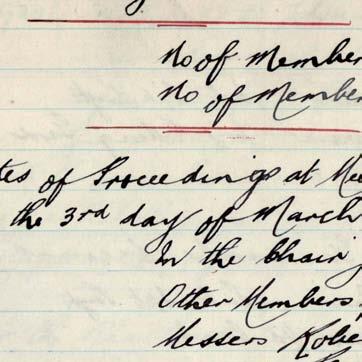 No of Member
No of Member
tes of Proceedings at Mee
the 3rd day of March
In the Chair
Other Members
Messers Robe